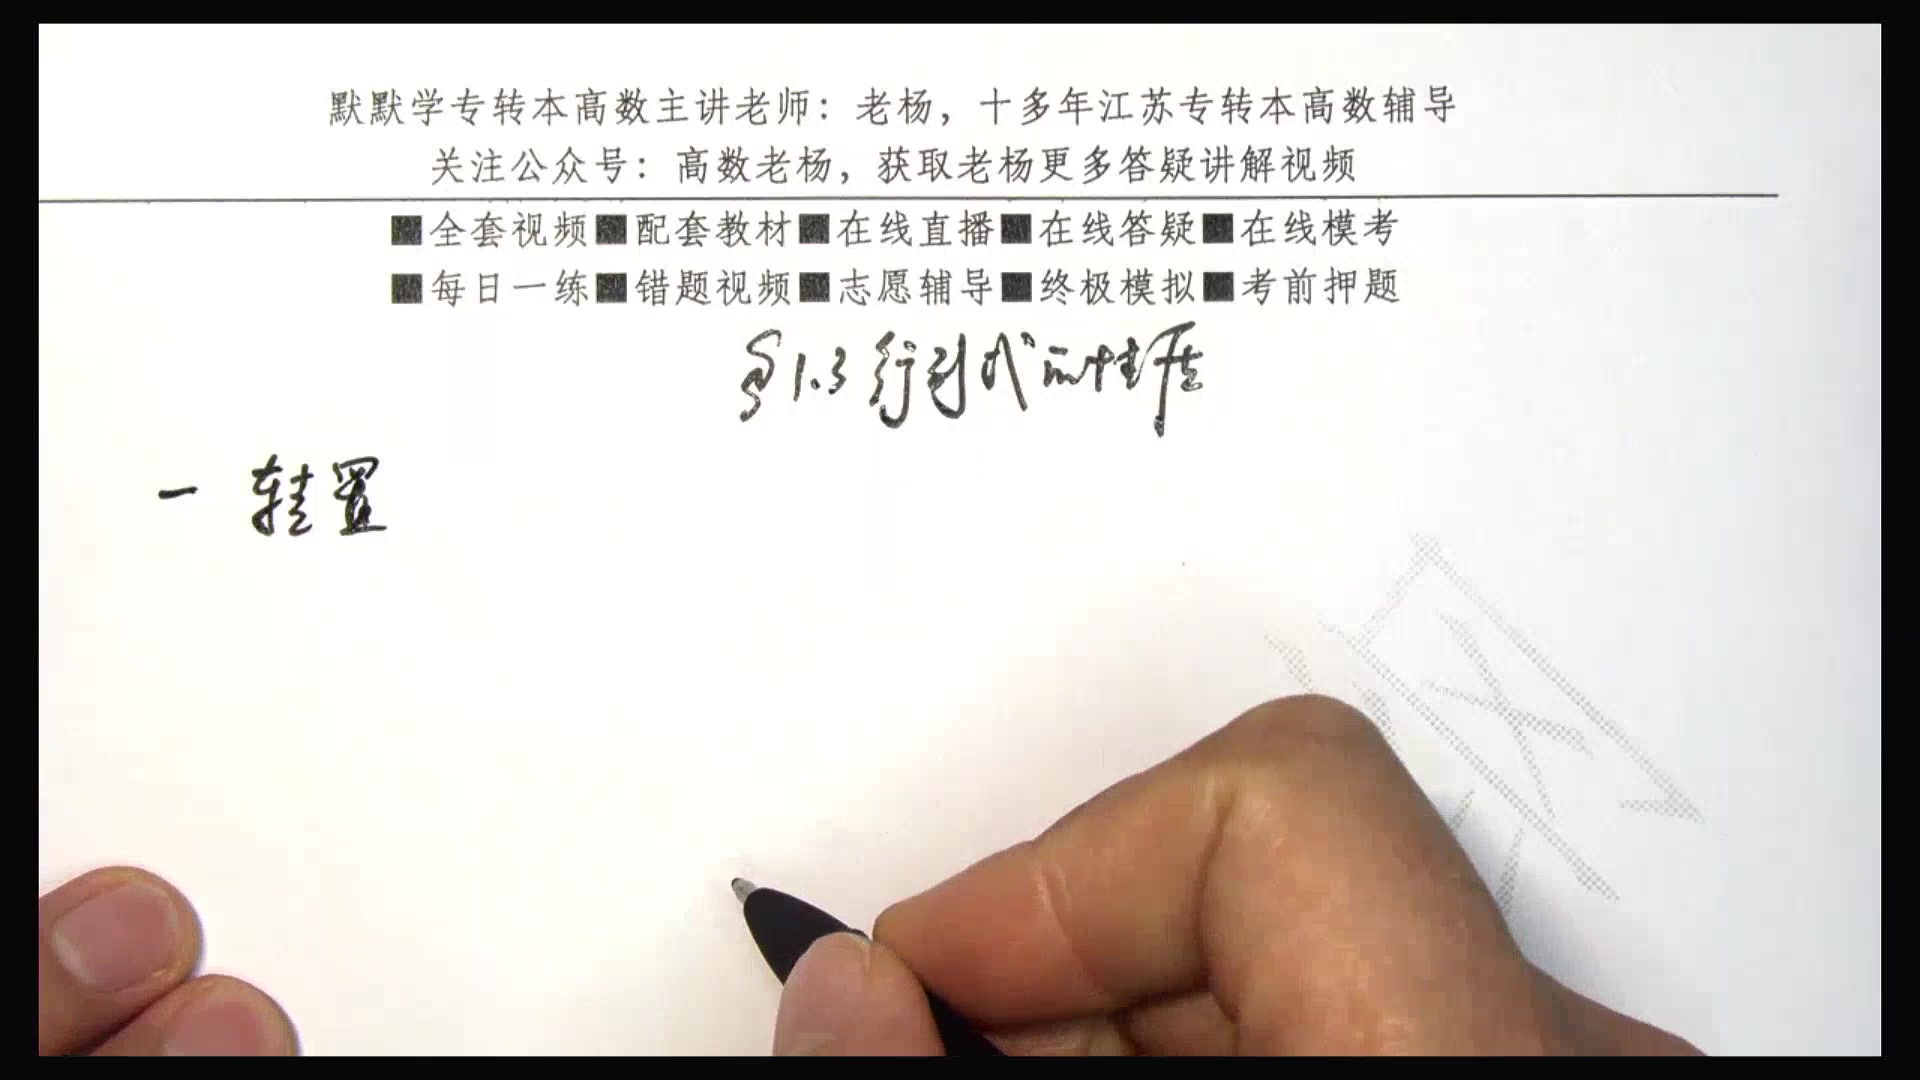 默默学专转本高数主讲老师：老杨，十多年江苏专转本高数辅导
关注公众号：高数老杨，获取老杨更多答疑讲解视频
■全套视频■配套教材■在线直播■在线答疑■在线模考
■每日一练■错题视频■志愿辅导■终极模拟■考前押题
§1.3 行列式的性质
一 转置